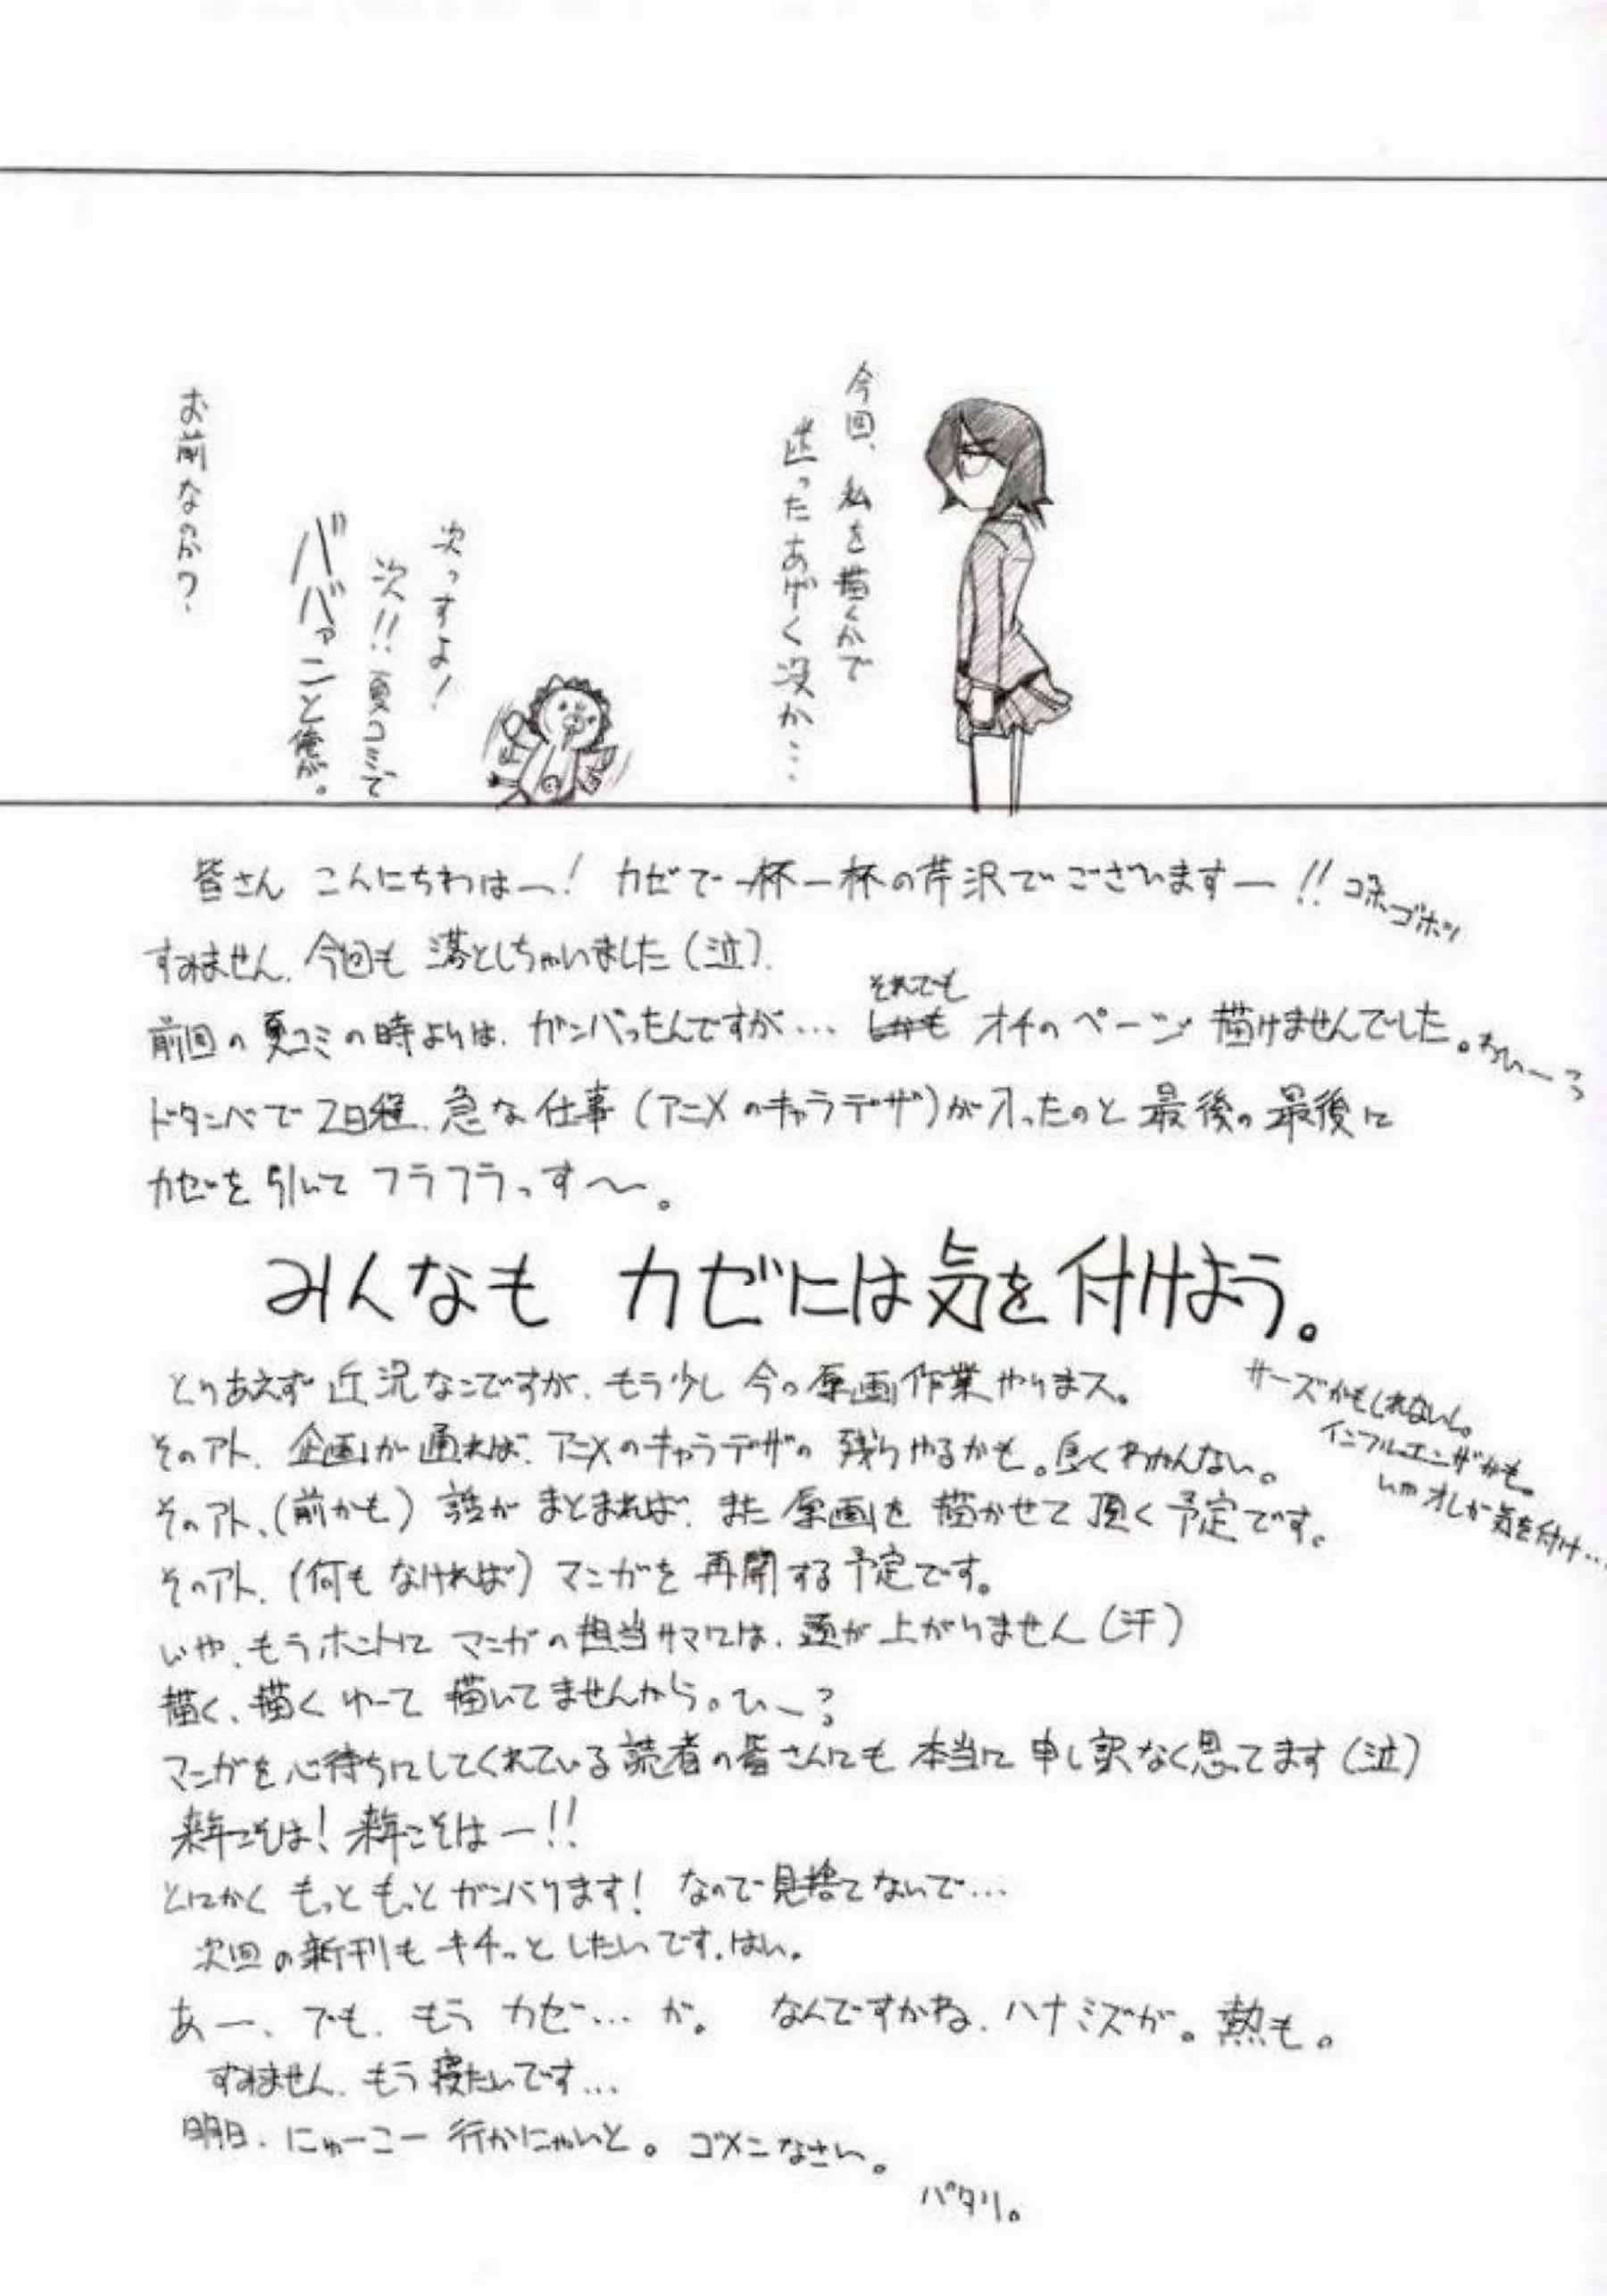 今回、私を描くかで
迷ったあげく没か…
次っすよ!
次!! 夏コミで
ババァンと俺が。
お前なのか?
皆さん こんにちわはー! カゼで一杯一杯の芹沢でございますー!! コホ、ゴホッ
すみません、今回も 落としちゃいました(泣)。
前回の夏コミの時よりは、ガンバったんですが… それでも オチのページ 描けませんでした。
ドタンバで 2日程、急な仕事(アニメのキャラデザ)が入ったのと 最後の最後に
カゼを引いて フラフラっす〜。
みんなも カゼには気を付けよう。
サーズかもしれないし。
インフルエンザかも。
オレが気を付け…
とりあえず 近況なこですが、もう少し 今の原画作業やりまス。
そのアト、企画が通れば、アニメのキャラデザの 残りやるかも。良くわかんない。
そのアト、(前かも) 話が まとまれば、また 原画を 描かせて 頂く予定です。
そのアト、(何もなければ) マンガを 再開する予定です。
いや、もうホントに マンガの担当サマには、頭が上がりません(汗)
描く、描くゆーて 描いてませんから。ひーっ
マンガを心待ちにしてくれている読者の皆さんにも 本当に 申し訳なく思ってます(泣)
来年こそは! 来年こそはー!!
とにかく もっともっと ガンバります! なので見捨てないで…
次回の新刊も キチっと したいです、はい。
あー、でも、もう カゼ…が。 なんですかね、ハナミズが。熱も。
すみません、もう寝たいです…
明日、にゅーこー 行かにゃいと。 ゴメンなさい。
パタリ。